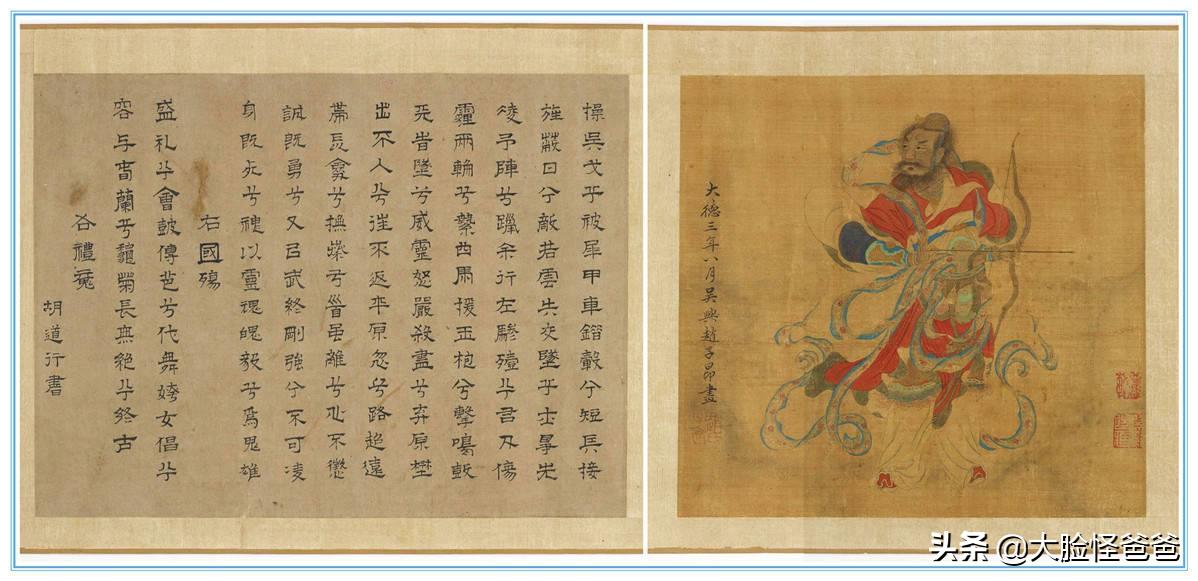 操吳戈兮被犀甲車錯轂兮短兵接
旌蔽日兮敵若雲矢交墜兮士爭先
凌予陣兮躐余行左驂殪兮右刃傷
霾兩輪兮縶四馬援玉枹兮擊鳴鼓
天時墜兮威靈怒嚴殺盡兮弃原壄
出不入兮往不返平原忽兮路超遠
帶長劍兮挾秦弓首雖離兮心不懲
誠既勇兮又以武終剛強兮不可凌
身既死兮神以靈魂魄毅兮爲鬼雄
右國殤
盛礼兮會鼓傳芭兮代舞姱女倡兮
容与春蘭兮秋菊長無絕兮終古
右禮魂
胡道行書
大德三年八月吳興趙子昂畫
头条 @大脸怪爸爸